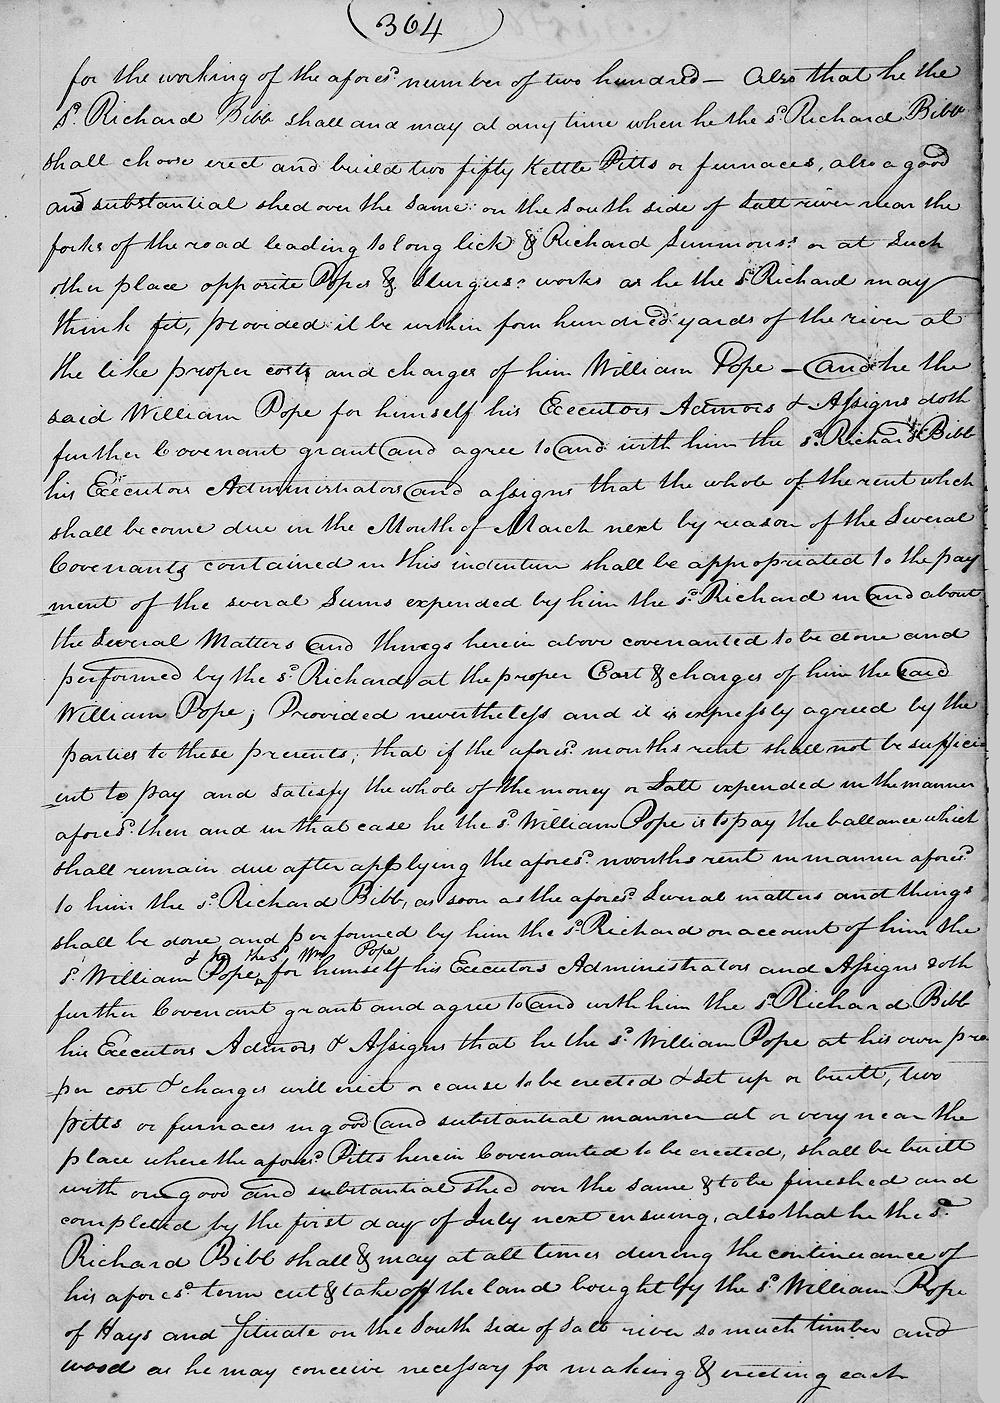 (364)
for the working of the afores.d number of two hundred — Also that he the
s.d Richard Bibb shall and may at any time when he the s.d Richard Bibb
shall choose erect and build two fifty Kettle Pitts or furnaces, also a good
and substantial shed over the same on the South side of Salt river near the
forks of the road leading to long lick & Richard Simmons.s or at Such
other place opposite Popes & Sturgus.s works as he the s.d Richard may
think fit, provided it be within four hundred yards of the river at
the like proper costs and charges of him William Pope — and he the
said William Pope for himself his Executors Admors & Assigns doth
further Covenant grant and agree to and with him the s.d Richard Bibb
his Executors Administrators and assigns that the whole of the rent which
shall become due in the Month of March next by reason of the Several
Covenants contained in this indenture shall be appropriated to the pay
ment of the several Sums expended by him the s.d Richard in and about
the Several Matters and things herein above covenanted to be done and
performed by the s.d Richard at the proper Cost & charges of him the said
William Pope; Provided nevertheless and it is expressly agreed by the
parties to these presents, that if the afores.d months rent shall not be suffici
ent to pay and satisfy the whole of the money or Salt expended in the manner
afores.d then and in that case he the s.d William Pope is to pay the ballance which
shall remain due after applying the afores.d months rent in manner afores.d
to him the s.d Richard Bibb, as soon as the afores.d Several matters and things
shall be done and performed by him the s.d Richard on account of him the
& he the s.d Wm Pope
s.d William Pope, for himself his Executors Administrators and Assigns doth
further Covenant grant and agree to and with him the s.d Richard Bibb
his Executors Admors & Assigns that he the s.d William Pope at his own pro
per cost & charges will erect or cause to be erected & set up or built, two
pitts or furnaces in good and substantial manner at or very near the
place where the afores.d Pitts herein Covenanted to be erected, shall be built
with one good and substantial shed over the same & to be finished and
completed by the first day of July next ensuing, also that he the s.d
Richard Bibb shall & may at all times during the continuance of
his afores.d term cut & take off the land bought by the s.d William Pope
of Hays and Situate on the South side of Salt river so much timber and
wood as he may conceive necessary for making & erecting each